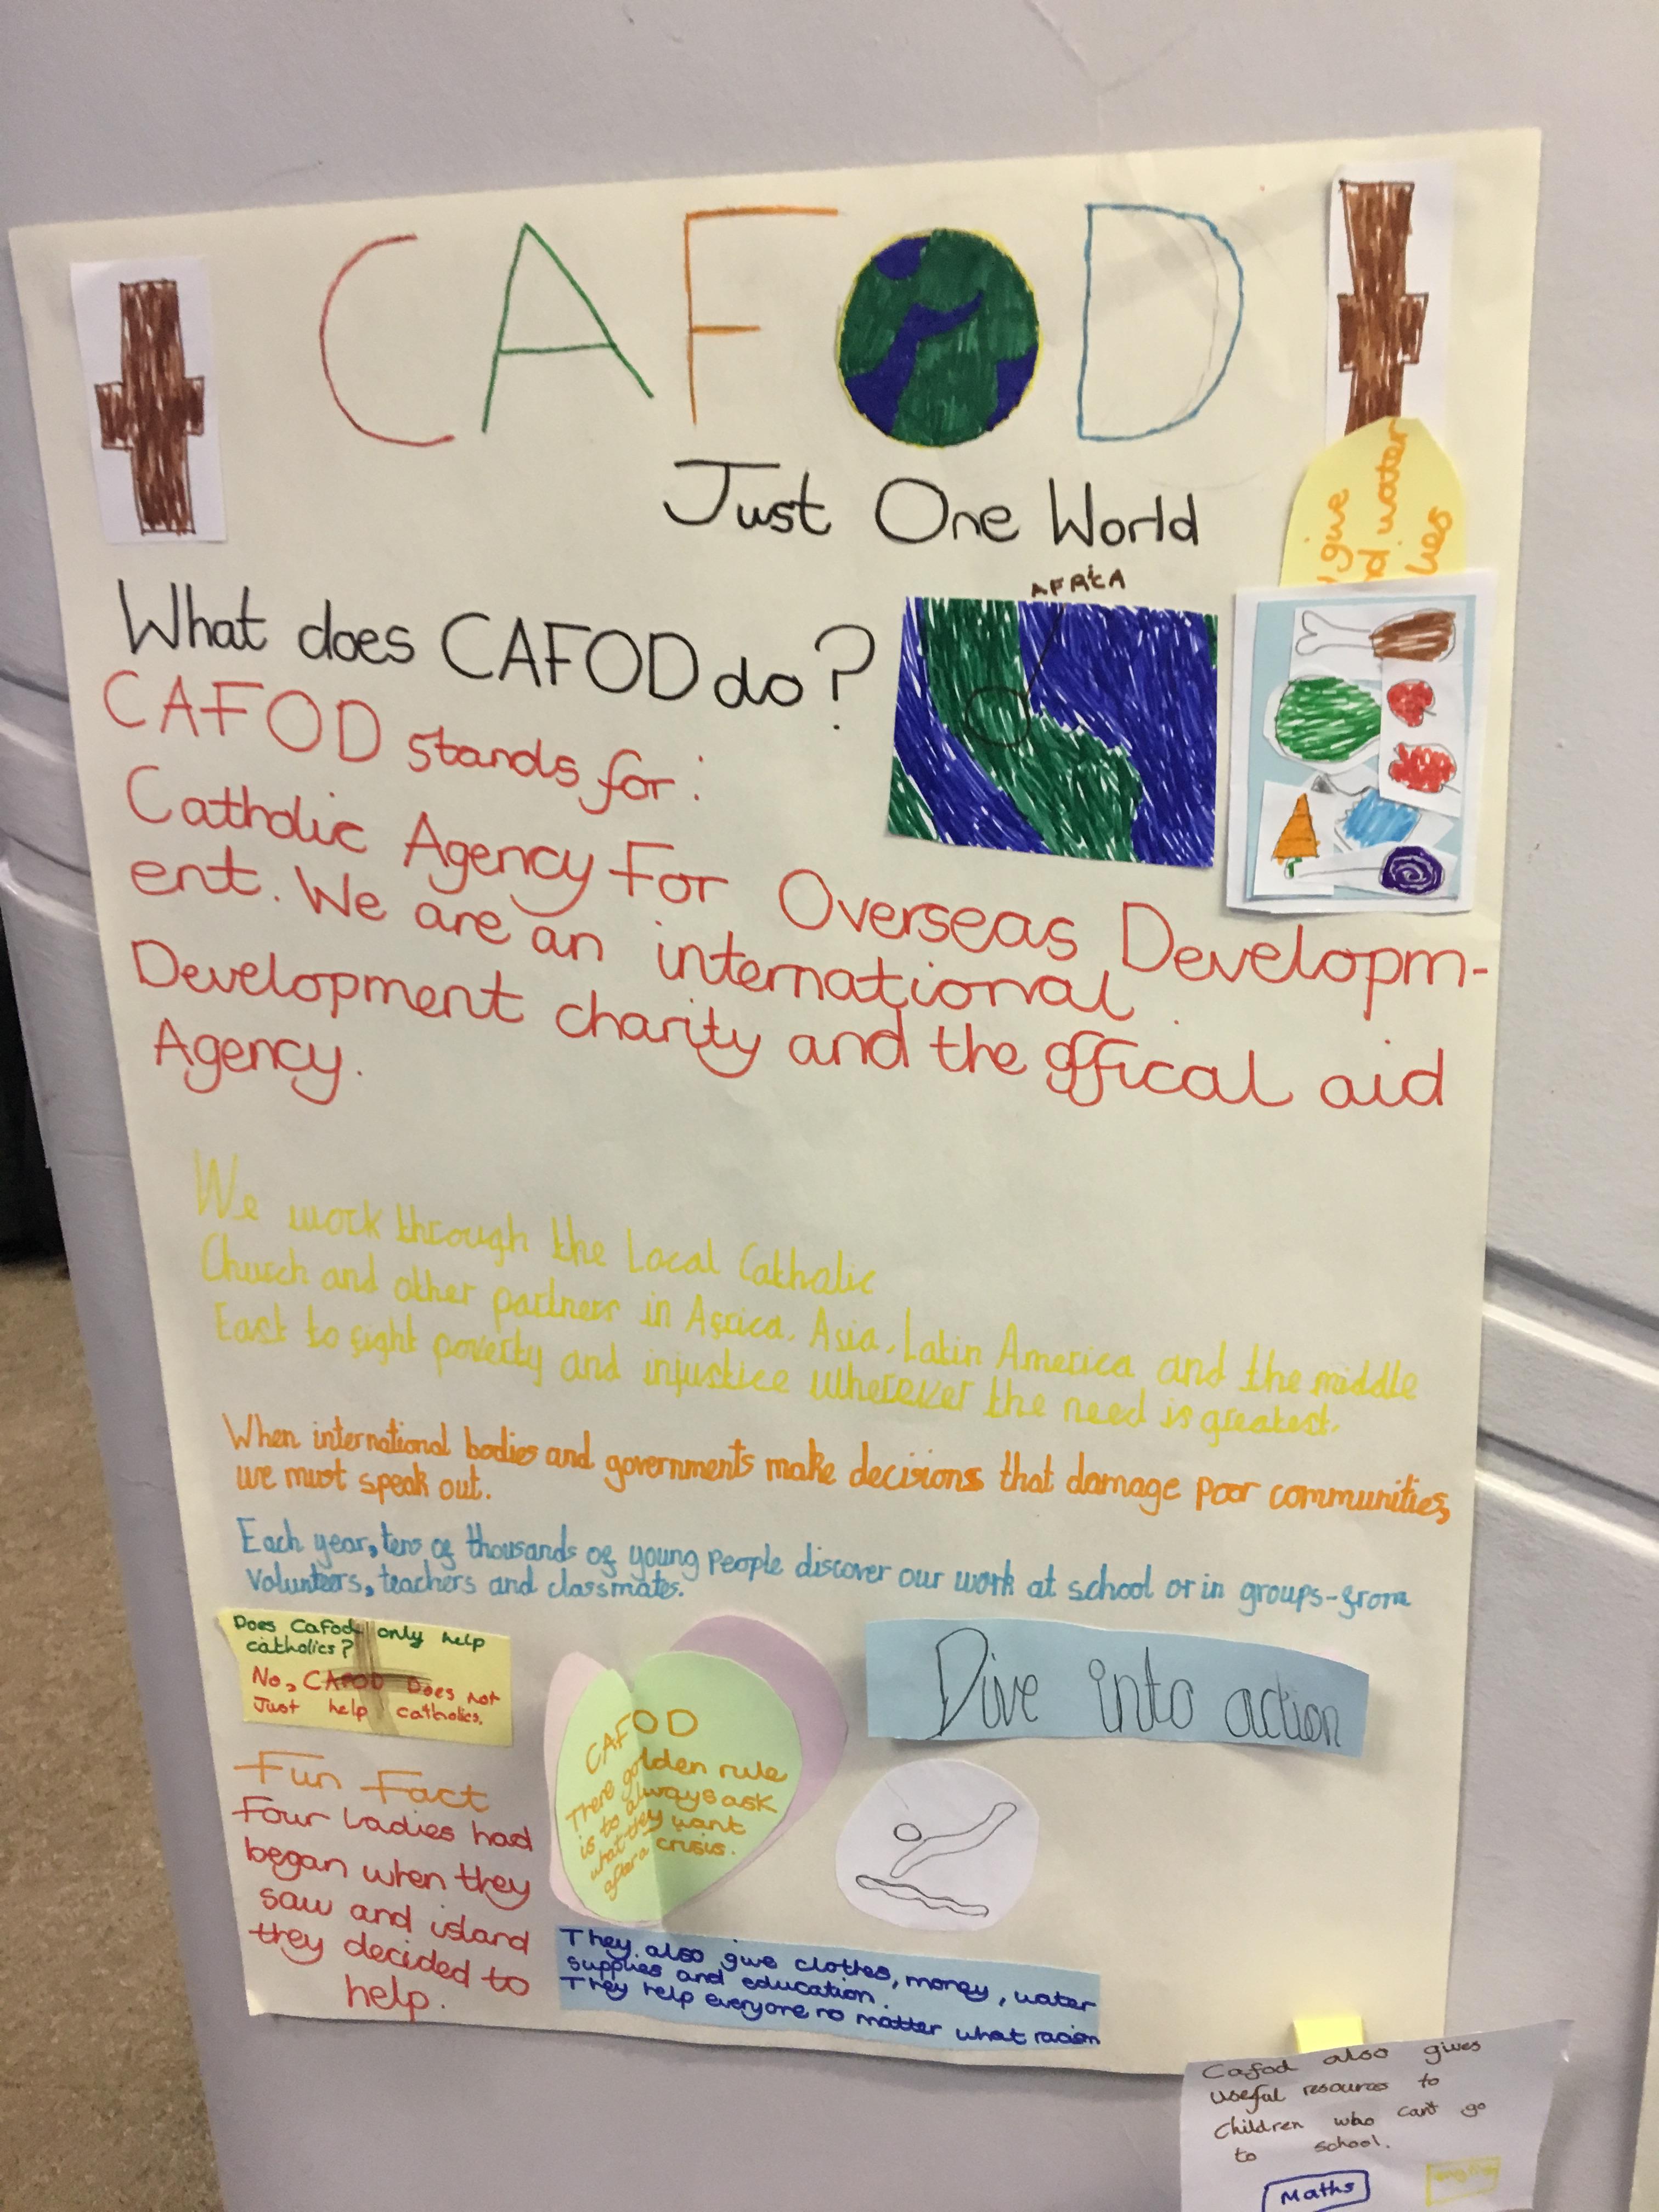 CAFOD
Just One World
give
water
AFRICA
What does CAFOD do?
CAFOD stands for:
Catholic Agency For Overseas Developm-
ent. We are an international
Development charity and the offical aid
Agency.
We work through the Local Catholic
Church and other partners in Africa, Asia, Latin America and the middle
East to fight poverty and injustice wherever the need is greatest.
When international bodies and governments make decisions that damage poor communities,
we must speak out.
Each year, tens of thousands of young people discover our work at school or in groups-from
Volunteers, teachers and classmates.
Does Cafod only help
catholics?
No, CAFOD Does not
Just help catholics.
Dive into action
CAFOD
There golden rule
is to always ask
what they want
after a crisis.
Fun Fact
Four Ladies had
began when they
saw and island
they decided to
help.
They also give clothes, money, water
supplies and education.
They help everyone no matter what
Cafod also gives
useful resources to
children who cant go
to school.
Maths
english